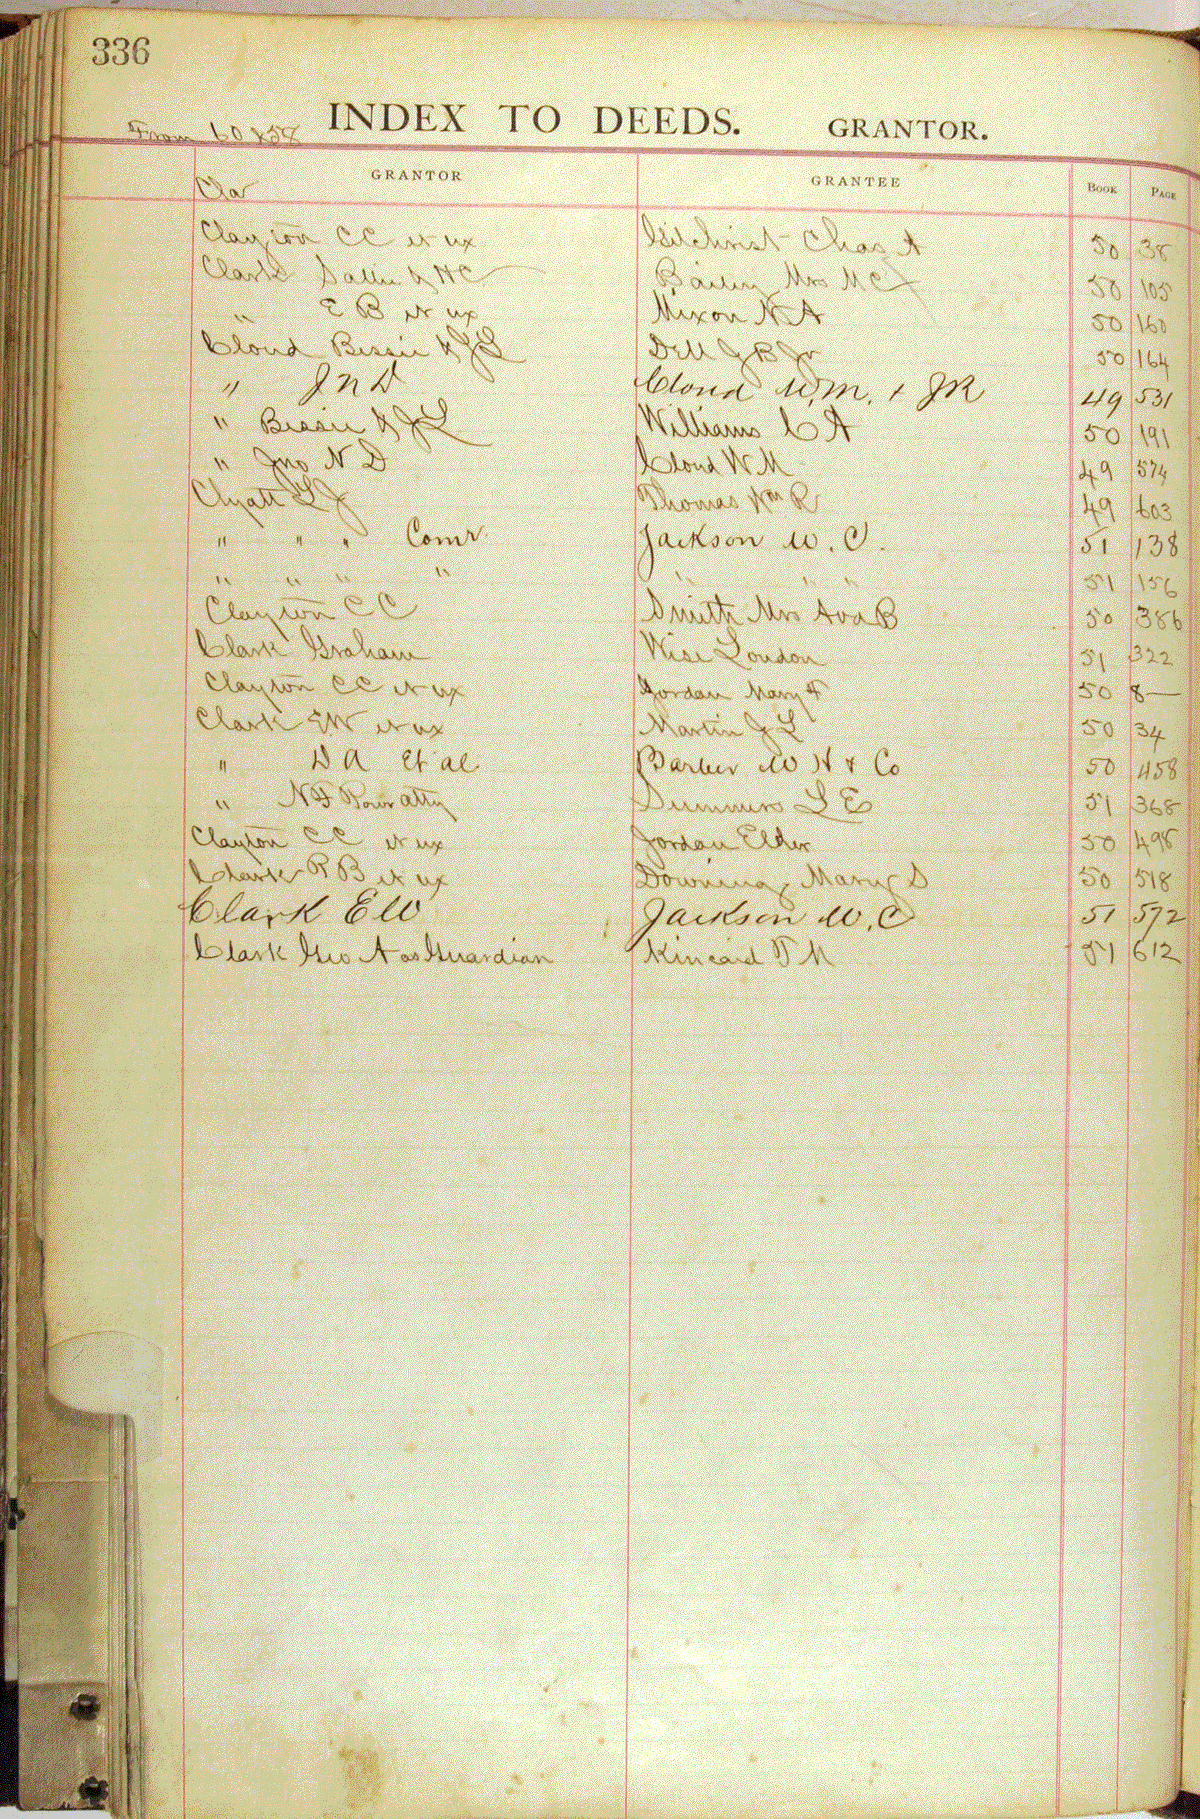 336
INDEX TO DEEDS. GRANTOR.
From
GRANTOR GRANTEE BOOK PAGE
Cla
Clayton C C et ux Gilchrist Chas A 50 38
Clark Sallie & H C Bailey Mrs M C 50 105
" E B et ux Mixon N A 50 160
Cloud Bessie & J L Dell J B Jr 50 164
" J N D Cloud W.M. + J R 49 531
" Bessie & J L Williams C A 50 191
" Jno N D Cloud W M 49 574
Clyatt L J Thomas Wm R 49 603
" " " Comr. Jackson W. C. 51 138
" " " " " " " 51 156
Clayton C C Smith Mrs Ava B 50 386
Clark Graham Wise London 51 322
Clayton C C et ux Jordan Mary F 50 8—
Clark E W et ux Martin J L 50 34
" D A Et al Barber W H & Co 50 458
" N F Powr atty Summers L E 51 368
Clayton C C et ux Jordan Elder 50 498
Clark P B et ux Downing Mary S 50 518
Clark E W Jackson W. C 51 572
Clark Geo A as Guardian Kincaid T M 51 612